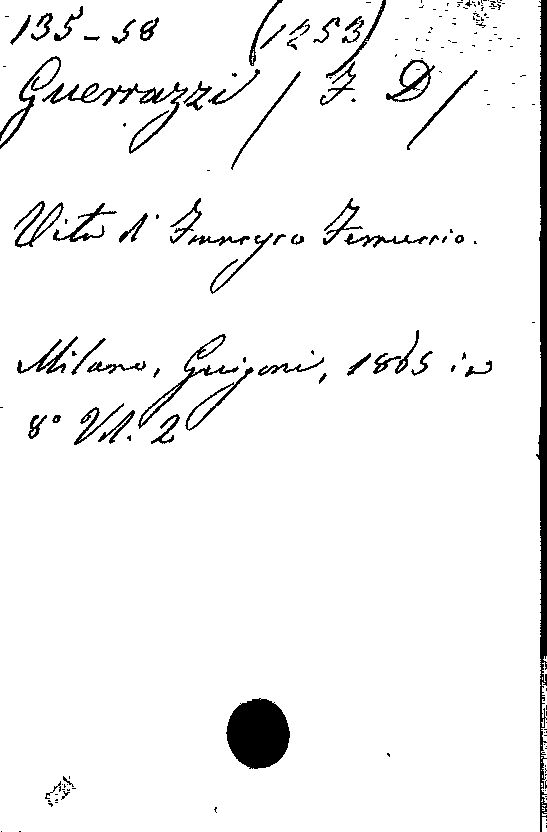 135-58 (1253)
Guerrazzi / F. D /
Vita di Francesco Ferruccio.
Milano, Guigoni, 1865 in
8° Vol. 2